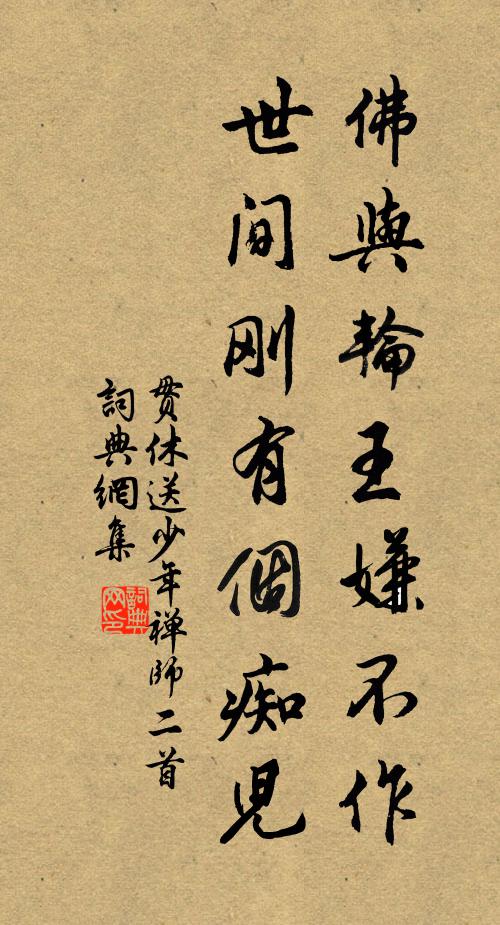 佛與輪王嫌不作
世间刚有個痴児
贯休送少年禅師二首
詞典網集
詞典网印